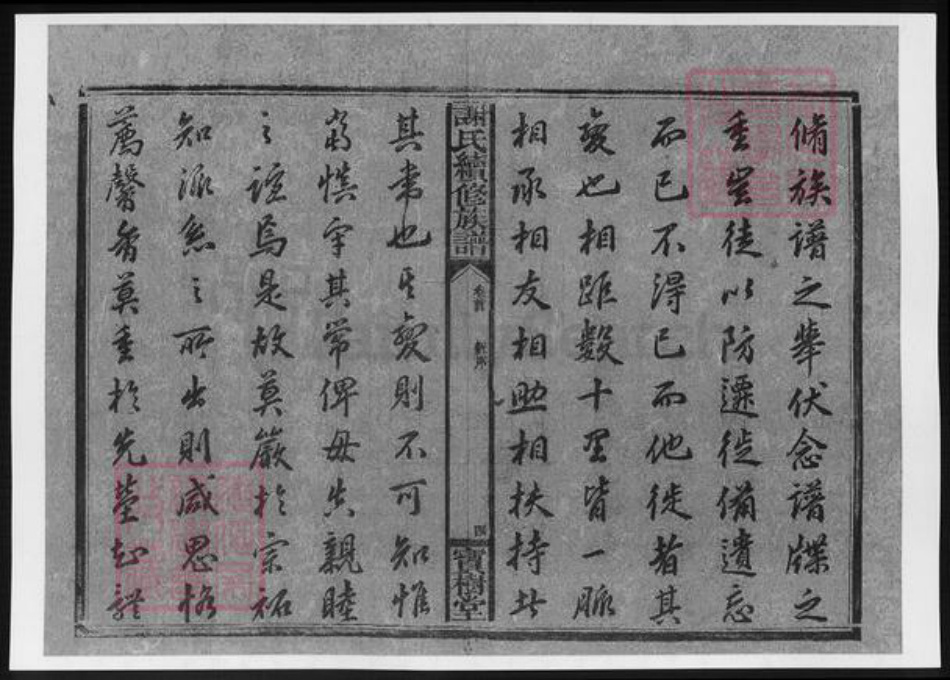 脩族譜之舉伏念譜牒之
重豈徒以防遷徙備遺忘
而已不得已而他徙者其
變也相距數十里皆一脈
相承相友相助相扶持此
謝氏續修族譜
卷首 新序
四
寶樹堂
其常也其變則不可知惟
當慎守其常俾毋失親睦
之誼焉是故莫嚴於宗祏
知派系之所出則咸思恪
薦馨香莫重於先塋